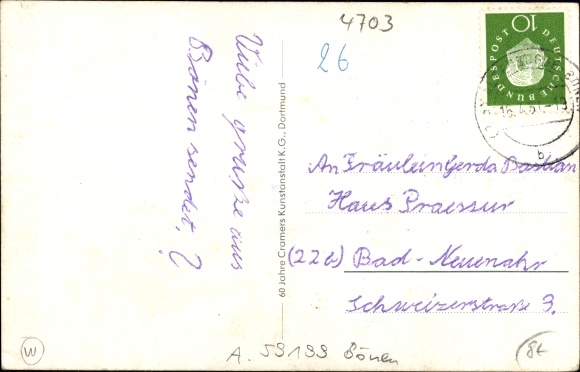 4703
26
10
DEUTSCHE BUNDESPOST
b
Liebe grüße aus
Bönen sendet, ?
60 Jahre Cramers Kunstanstalt K.G., Dortmund
An Fräulein Gerda Bastian
Haus Praessur
(22b) Bad-Neuenahr
Schweizerstraße 3.
W
A. 59199 Bönen
8t